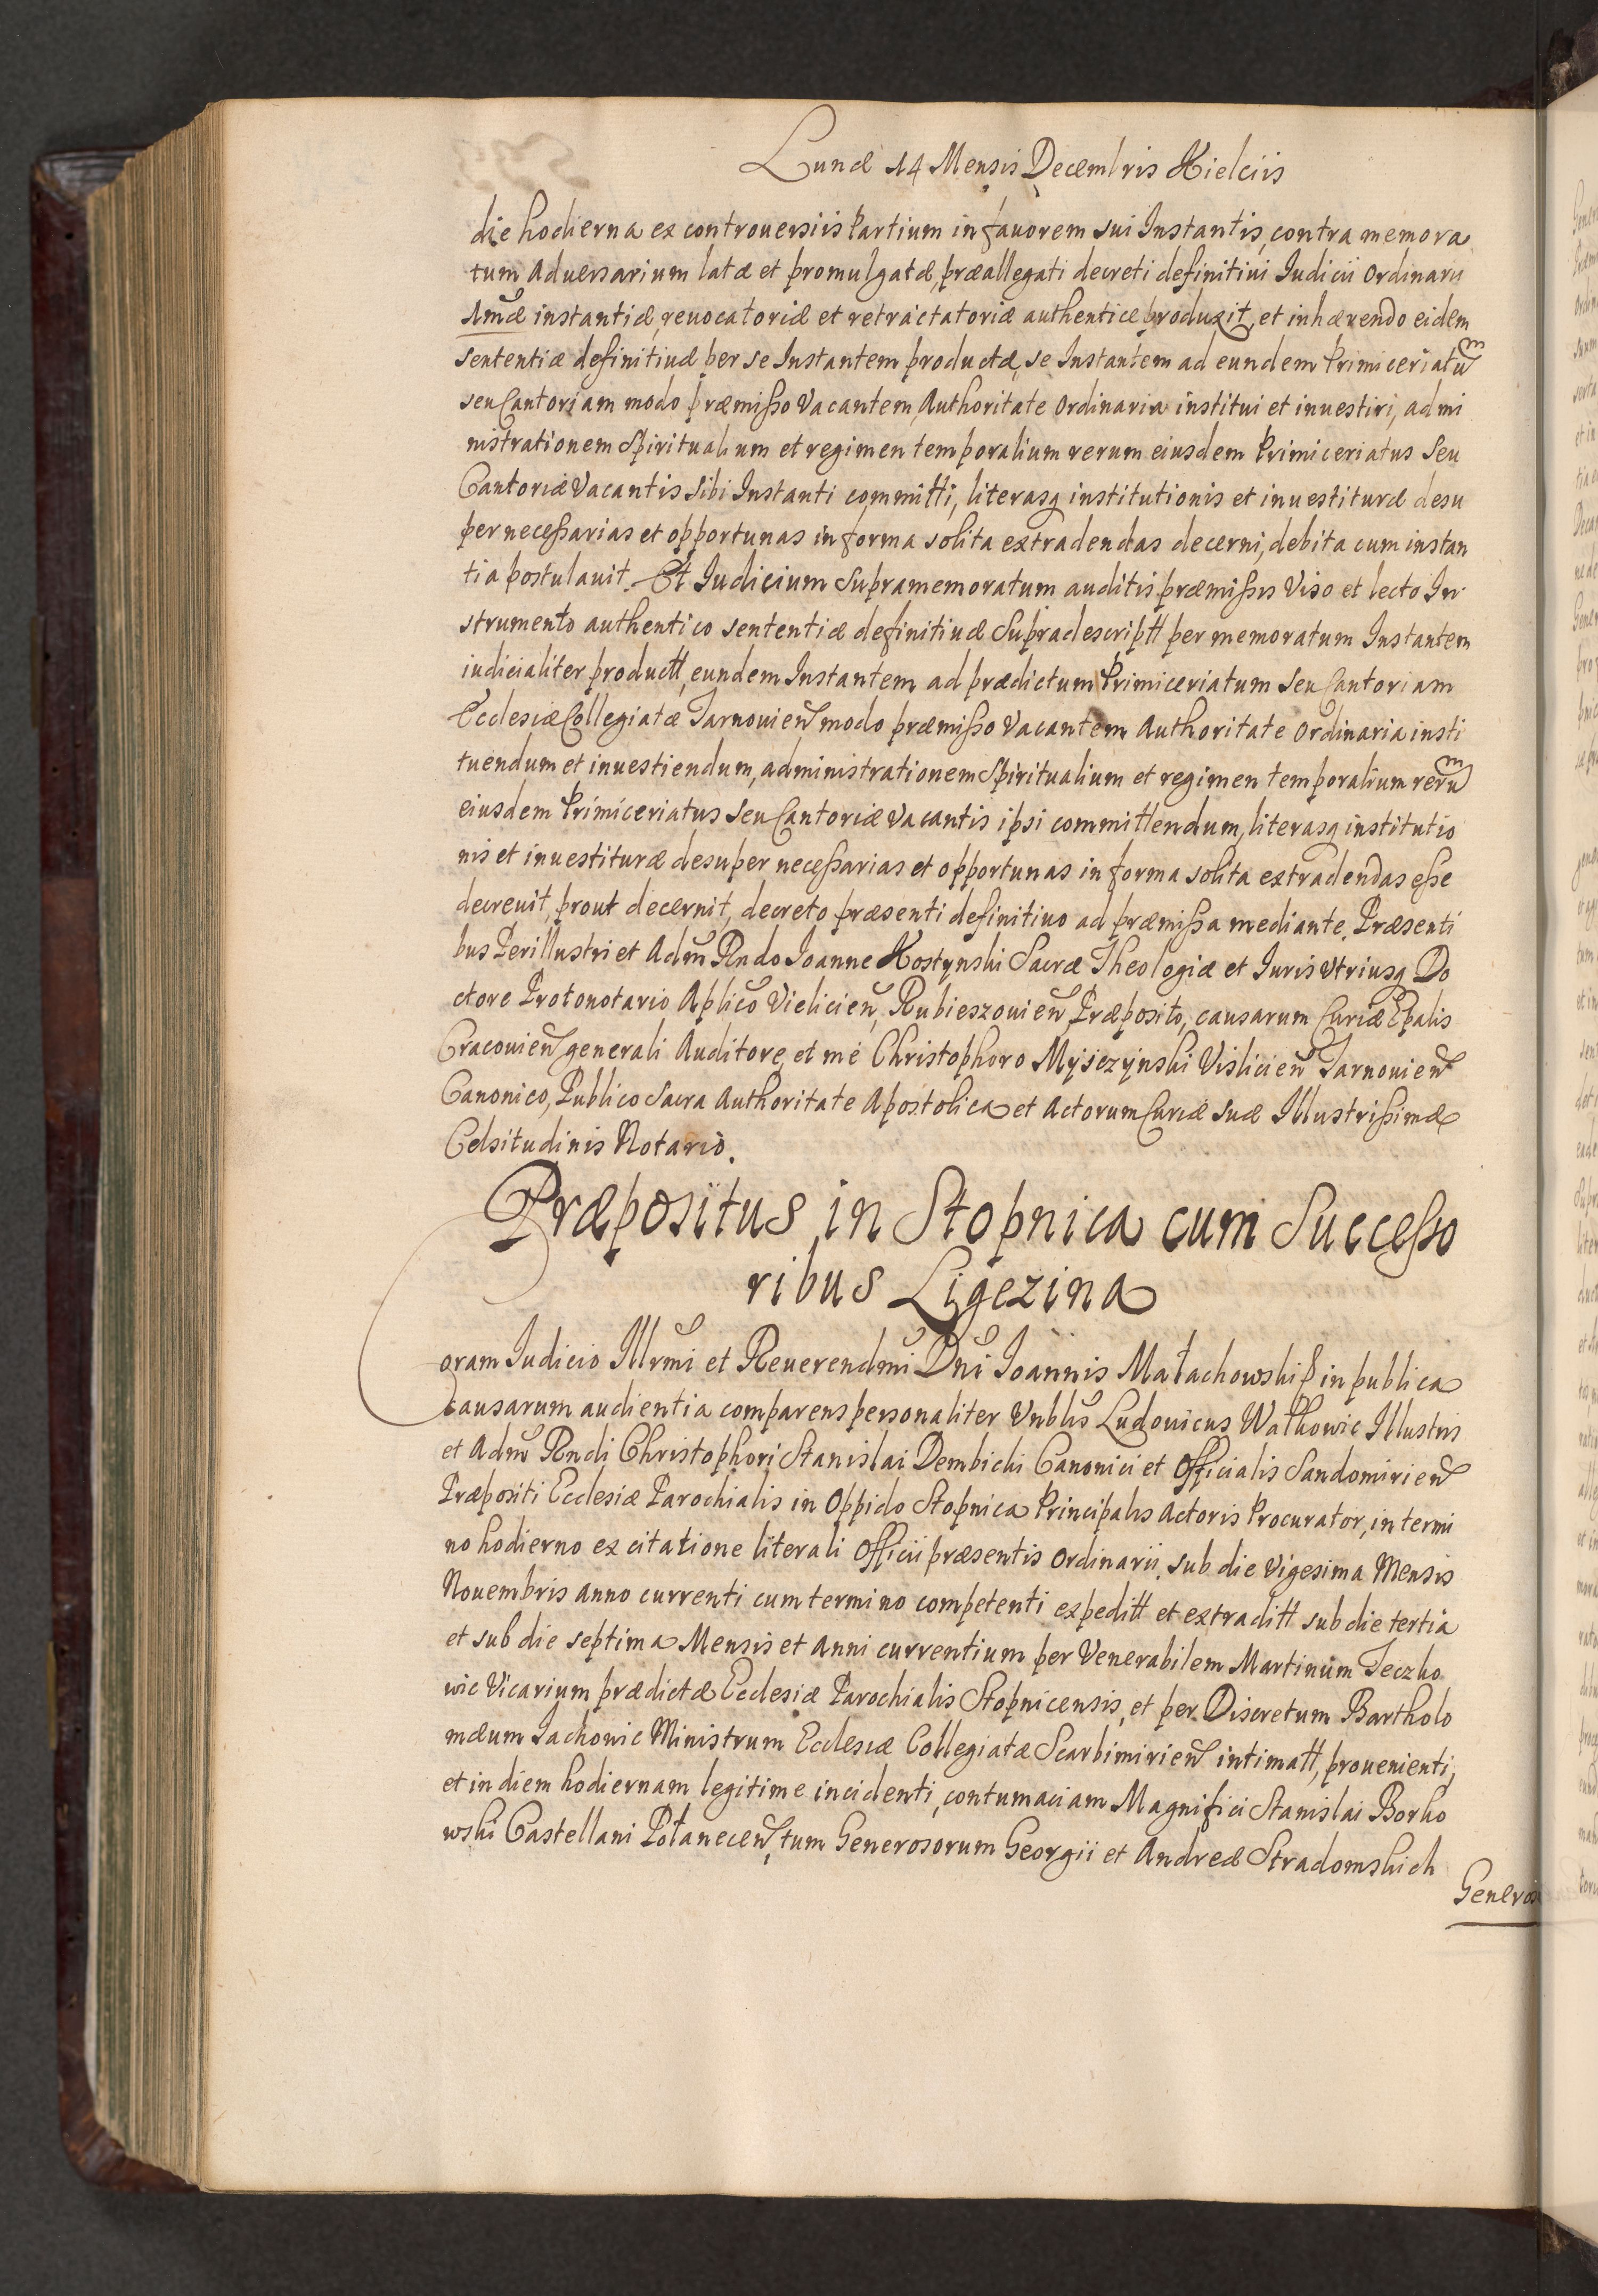 Lunæ 14 Mensis Decembris Kielciis
die hodierna ex controuersiis Partium in fauorem sui Instantis, contra memora
tum Aduersarium latæ et promulgatæ, præallegati decreti definitiui Iudicii Ordinarii
1mæ instantiæ, reuocatoriæ et retractatoriæ authenticæ produxit, et inhærendo eidem
sententiæ definitiuæ per se Instantem productæ, se Instantem ad eundem Primiceriatũ
seu Cantoriam modo præmisso Vacantem, Authoritate Ordinaria institui et inuestiri, admi
nistrationem Spiritualium et regimen temporalium rerum eiusdem Primiceriatus Seu
Cantoriæ Vacantis sibi Instanti committi, literasq institutionis et inuestituræ desu
per necessarias et opportunas in forma solita extradendas decerni, debita cum instan
tia postulauit. Et Iudicium Supramemoratum auditis præmissis Viso et lecto In
strumento authentico sententiæ definitiuæ Supradescriptt per memoratum Instantem
iudicialiter productt, eundem Instantem ad prædictum Primiceriatum Seu Cantoriam
Ecclesiæ Collegiatæ Tarnouien̄ modo præmisso Vacantem Authoritate Ordinaria insti
tuendum et inuestiendum, administrationem Spiritualium et regimen temporalium rerũ
eiusdem Primiceriatus Seu Cantoriæ vacantis ipsi committendum, literasq institutio
nis et inuestituræ desuper necessarias et opportunas in forma solita extradendas esse
decreuit, prout decernit, decreto præsenti definitiuo ad præmissa mediante. Præsenti
bus Perillustri et Adm̃ Rndo Ioanne Kostynski Sacræ Theologiæ et Iuris Vtriusq Do
ctore Protonotario Aplico Vielicien̄, Rubieszouien̄ Præposito, causarum Curiæ Epalis
Cracouien̄ generali Auditore, et me Christophoro Myszzynski Vislicien̄ Tarnouien̄
Canonico, Publico Sacra Authoritate Apostolica et Actorum Curiæ suæ Illustrissimæ
Celsitudinis Notario.
Præpositus in Stopnica cum Successo
ribus Ligezina
Coram Iudicio Illrmi et Reuerendmi Dni Ioannis Małachowski p in publica
causarum audientia comparens personaliter Vnblis Ludouicus Watkowic Illustris
et Adm̃ Rndi Christophori Stanislai Dembicki Canonici et Officialis Sandomirien̄
Præpositi Ecclesiæ Parochialis in Oppido Stopnica Principalis Actoris Procurator, in termi
no hodierno ex citatione literali Officii præsentis Ordinarii, sub die Vigesima Mensis
Nouembris anno currenti cum termino competenti expeditt et extraditt sub die tertia
et sub die septima Mensis et Anni currentium per Venerabilem Martinum Teczko
wic Vicarium prædictæ Ecclesiæ Parochialis Stopnicensis, et per Discretum Bartholo
mæum Iachowic Ministrum Ecclesiæ Collegiatæ Scarbimirien̄ intimatt, prouenienti,
et in diem hodiernam legitime incidenti, contumaciam Magnifici Stanislai Borko
wski Castellani Połanecen̄, tum Generosorum Georgii et Andreæ Stradomskich
Generos